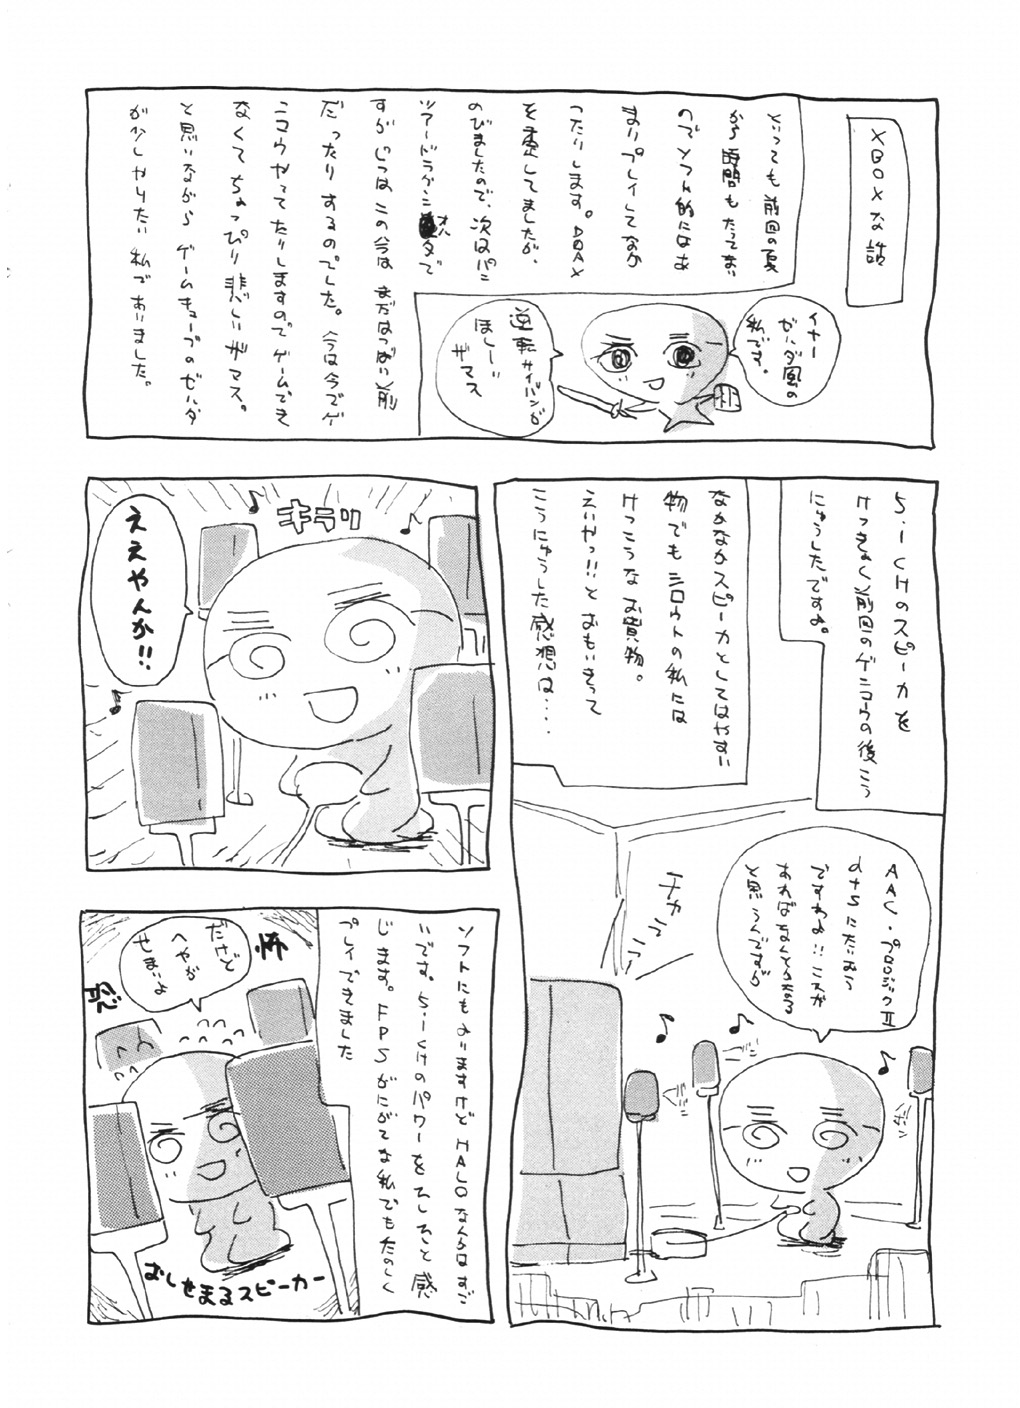 XBOXな話
といっても前回の夏
から時間もたってまい
のでソフト的にはあ
まりプレイしてなか
ったりします。DOAX
を楽しみしてましたが、
のびましたので、次はパン
ツァードラグーン オルタで
すがじつはこの今はまだはつばい前
だったりするのでした。今は今でゲ
ンコウやってたりしますのでゲームでき
なくてちょっぴり悲しいザマス。
と思いながらゲームキューブのゼルダ
が少しやりたい私でありました。
イナー
ゼルダ風の
私です。
逆転サイバンが
ほしーー
ザマス
5.1CHのスピーカを
けっきょく前回のゲンコウの後こう
にゅうしたですよ。
なかなかスピーカとしてはやすい
物でもシロウトの私には
けっこうなお買物。
えいやっ!!とおもいきって
こうにゅうした感想は‥‥
AAC・プロロジックⅡ
dtsにたいおう
ですわよ!!これが
あればなんでもなる
と思うんですが
チカラ
キラリ
ええやんか!!
ソフトにもよりますけどHALOなんかはすご
いです。5.1CHのパワーをひしひしと感
じます。FPSがにがてな私でもたのしく
プレイできました
だけど
へやが
せまいよ
怖
恐
おしせまるスピーカー